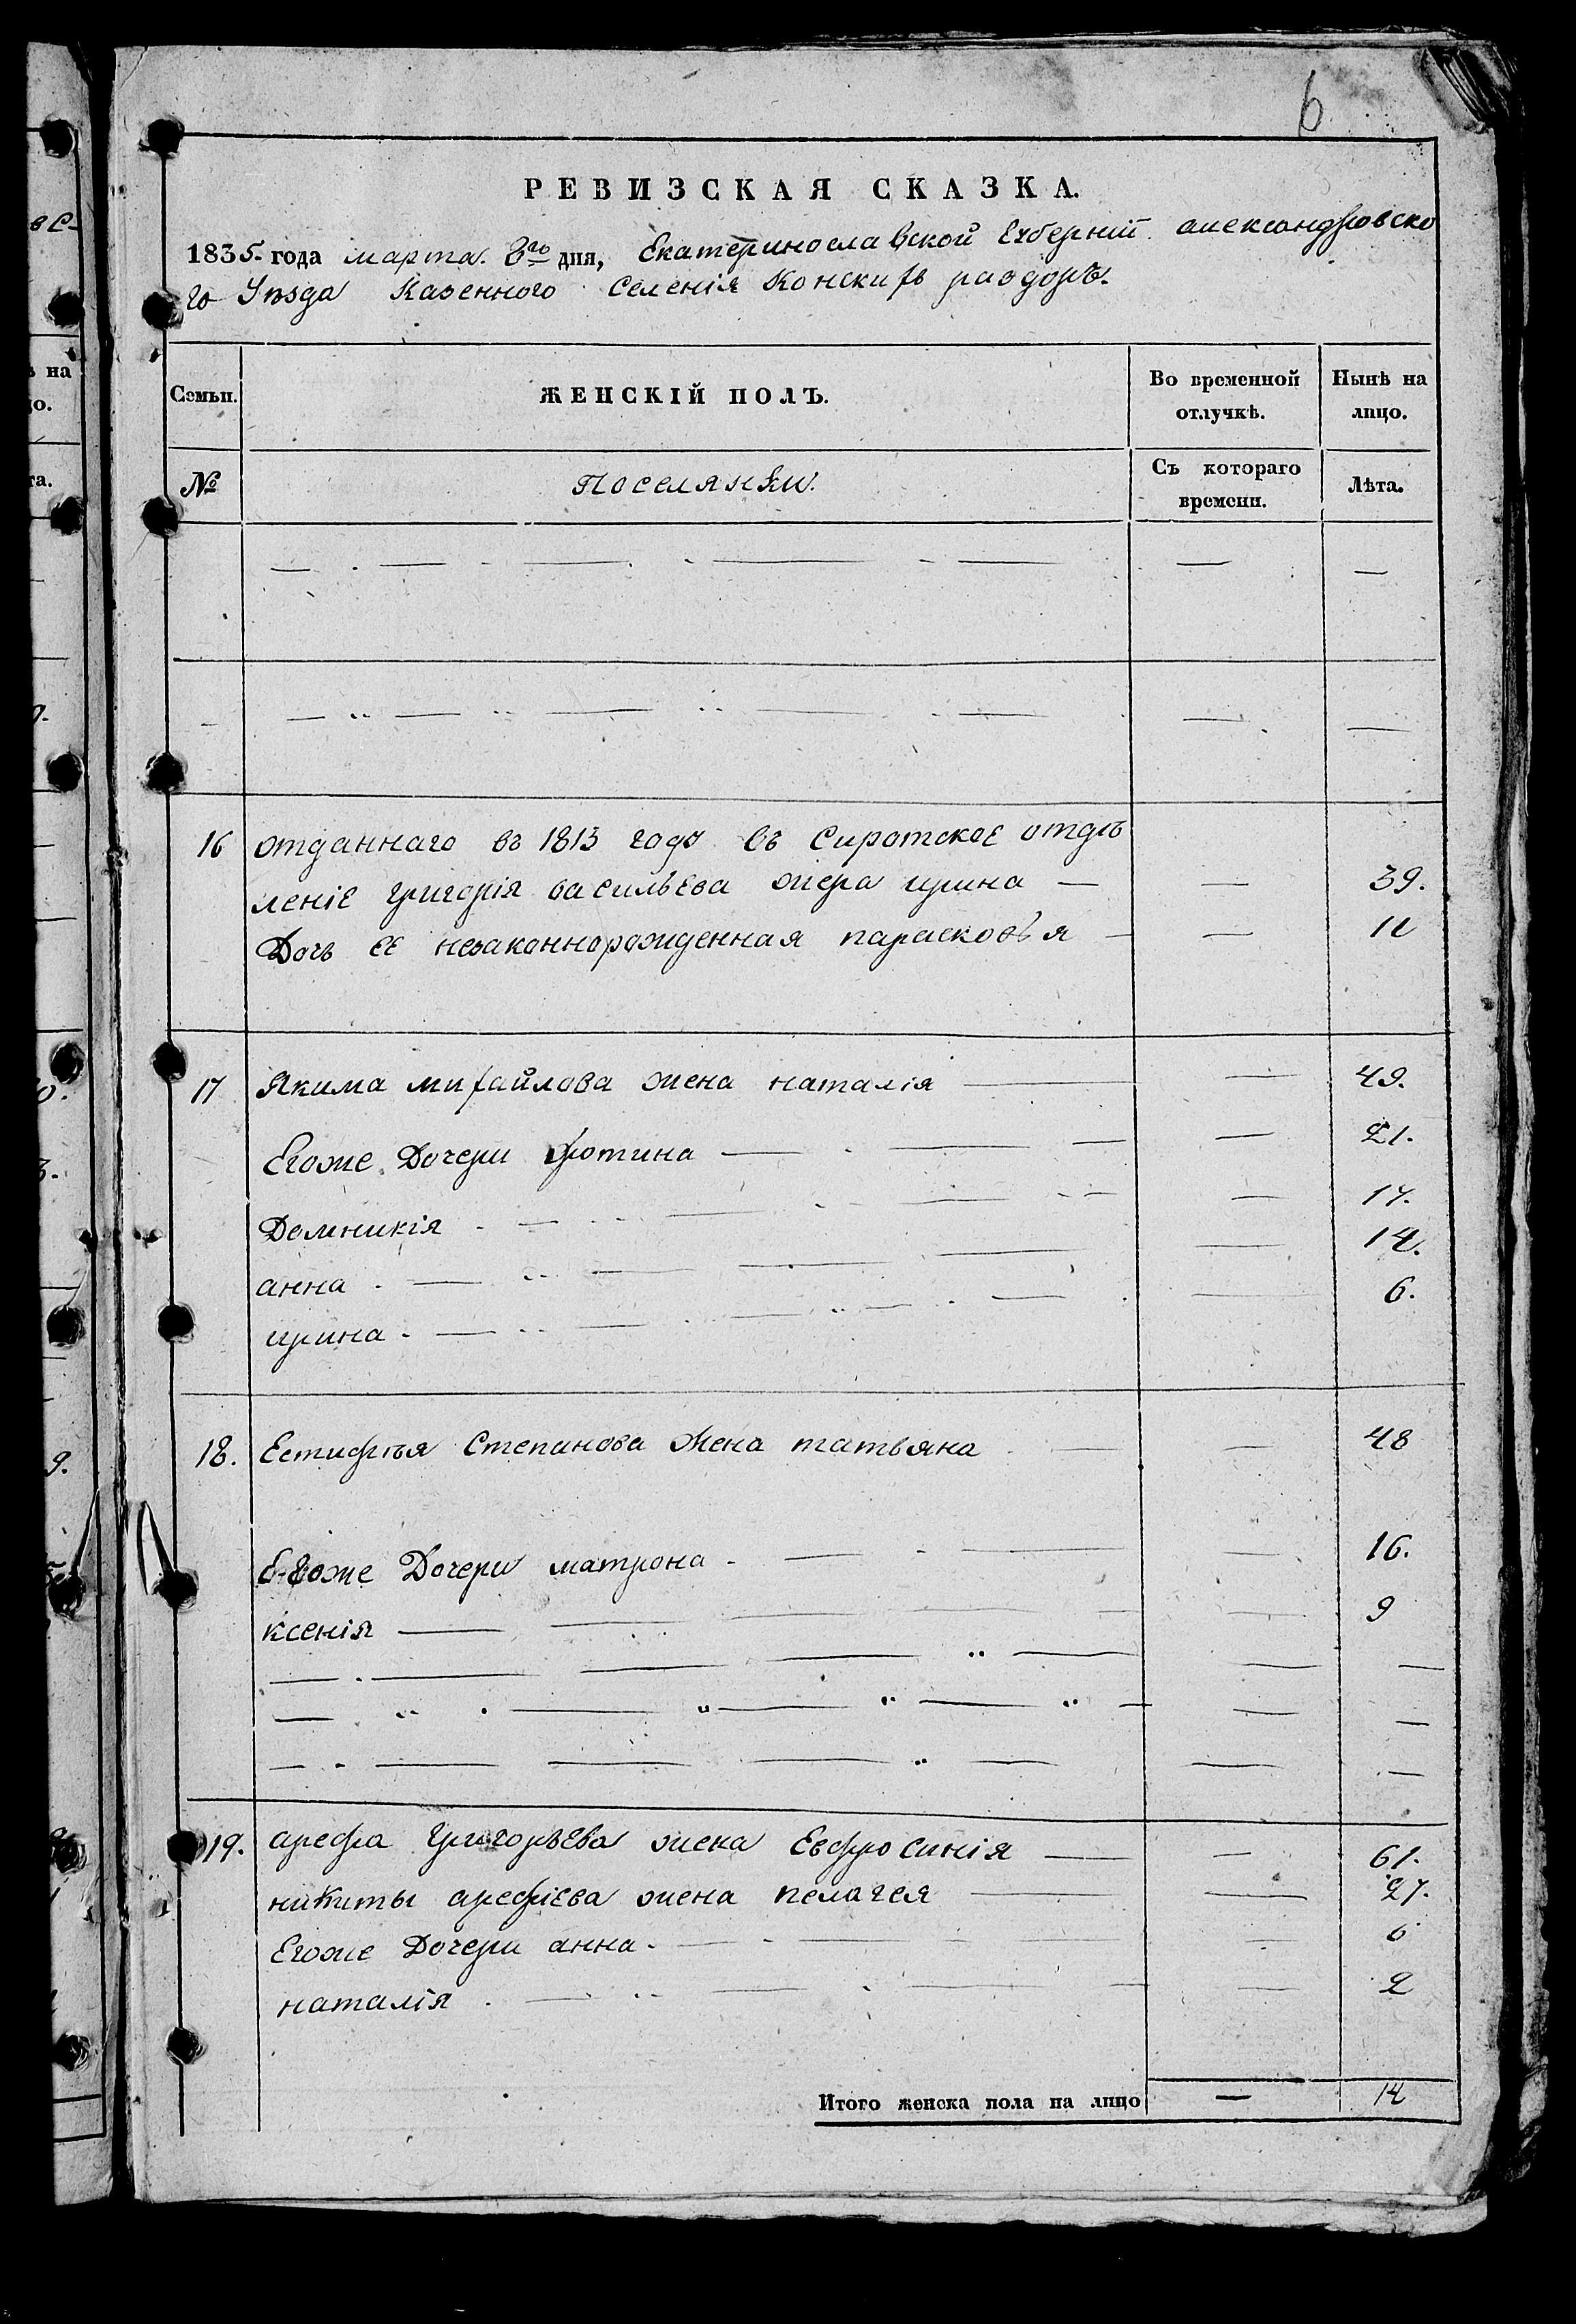 6
РЕВИЗСКАЯ СКАЗКА.
1835. года марта. 8го дня, Екатеринославской Губерніи александровско
го Уѣзда Казенного Селенія Конскихъ раздоръ.
Семьи. ЖЕНСКІЙ ПОЛЪ. Во временной отлучкѣ. Нынѣ на лицо.
№ Поселянки. Съ котораго времени. Лѣта.
16 отданнаго въ 1813 году въ Сиротское отдѣ
леніе григорія васильева жена ирина — — 39.
Дочь ее незаконнорожденная парасковья — — 11
17 Якима михайлова жена наталія — — 49.
Егоже Дочери фотина — — 21.
Домникія — — 17.
анна — — 14.
ирина — — 6.
18. Естифѣя Степанова Жена татьяна — — 48
Егоже Дочери матрона — — 16.
ксенія — — 9
19. арефа григорьева жена Евфросинія — — 61.
никиты арефіева жена пелагея — — 27.
Егоже Дочери анна — — 6
наталія — — 2
Итого женска пола на лицо — 14